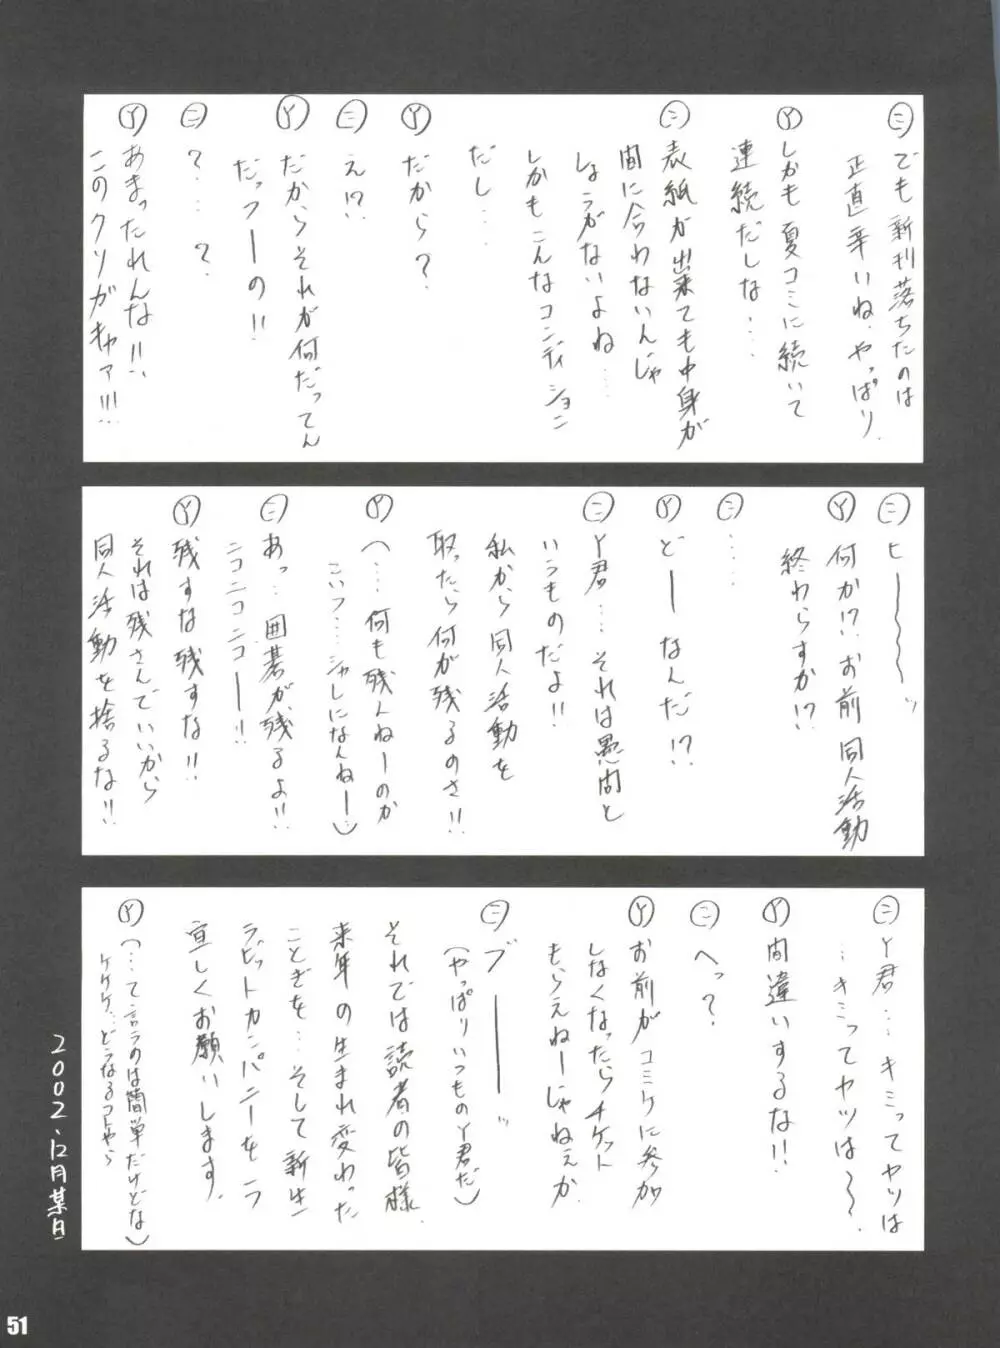 ㊁でも新刊落ちたのは
正直辛いね、やっぱり。
Ⓨしかも夏コミに続いて
連続だしな‥‥
㊁表紙が出来ても中身が
間に合わないんじゃ
しょうがないよね‥‥
しかもこんなコンディション
だし‥‥
Ⓨだから?
㊁え!?
Ⓨだからそれが何だってん
だっつーの!!
㊁?‥‥?
Ⓨあまったれんな!!
このクソガキャァ!!!
㊁ヒ〜〜〜〜ッ
Ⓨ何か!?、お前同人活動
終わらすか!?
㊁‥‥
Ⓨどーーなんだ!?
㊁Y君‥‥それは愚問と
いうものだよ!!
私から同人活動を
取ったら何が残るのさ!!
Ⓨ(‥‥何も残んねーのか
こいつ‥‥シャレになんねーー)
㊁あっ‥囲碁が、残るよ!!
ニコニコニコーー!!
Ⓨ残すな残すな!!
それは残さんでいいから
同人活動を捨るな!!
㊁Y君‥‥キミってヤツは
‥キミってヤツは〜〜。
Ⓨ間違いするな!!
㊁へっ?
Ⓨお前がコミケに参加
しなくなったらチケット
もらえねーじゃねぇか
㊁ブーーーーッ
(やっぱりいつものY君だ)
それでは読者の皆様。
来年の生まれ変わった
ことぎを‥そして新生
ラビットカンパニーをヲ
宜しくお願いします。
Ⓨ(‥‥て言うのは簡単だけどな)
ケケケ‥どうなるコトやら
2002、12月某日
51